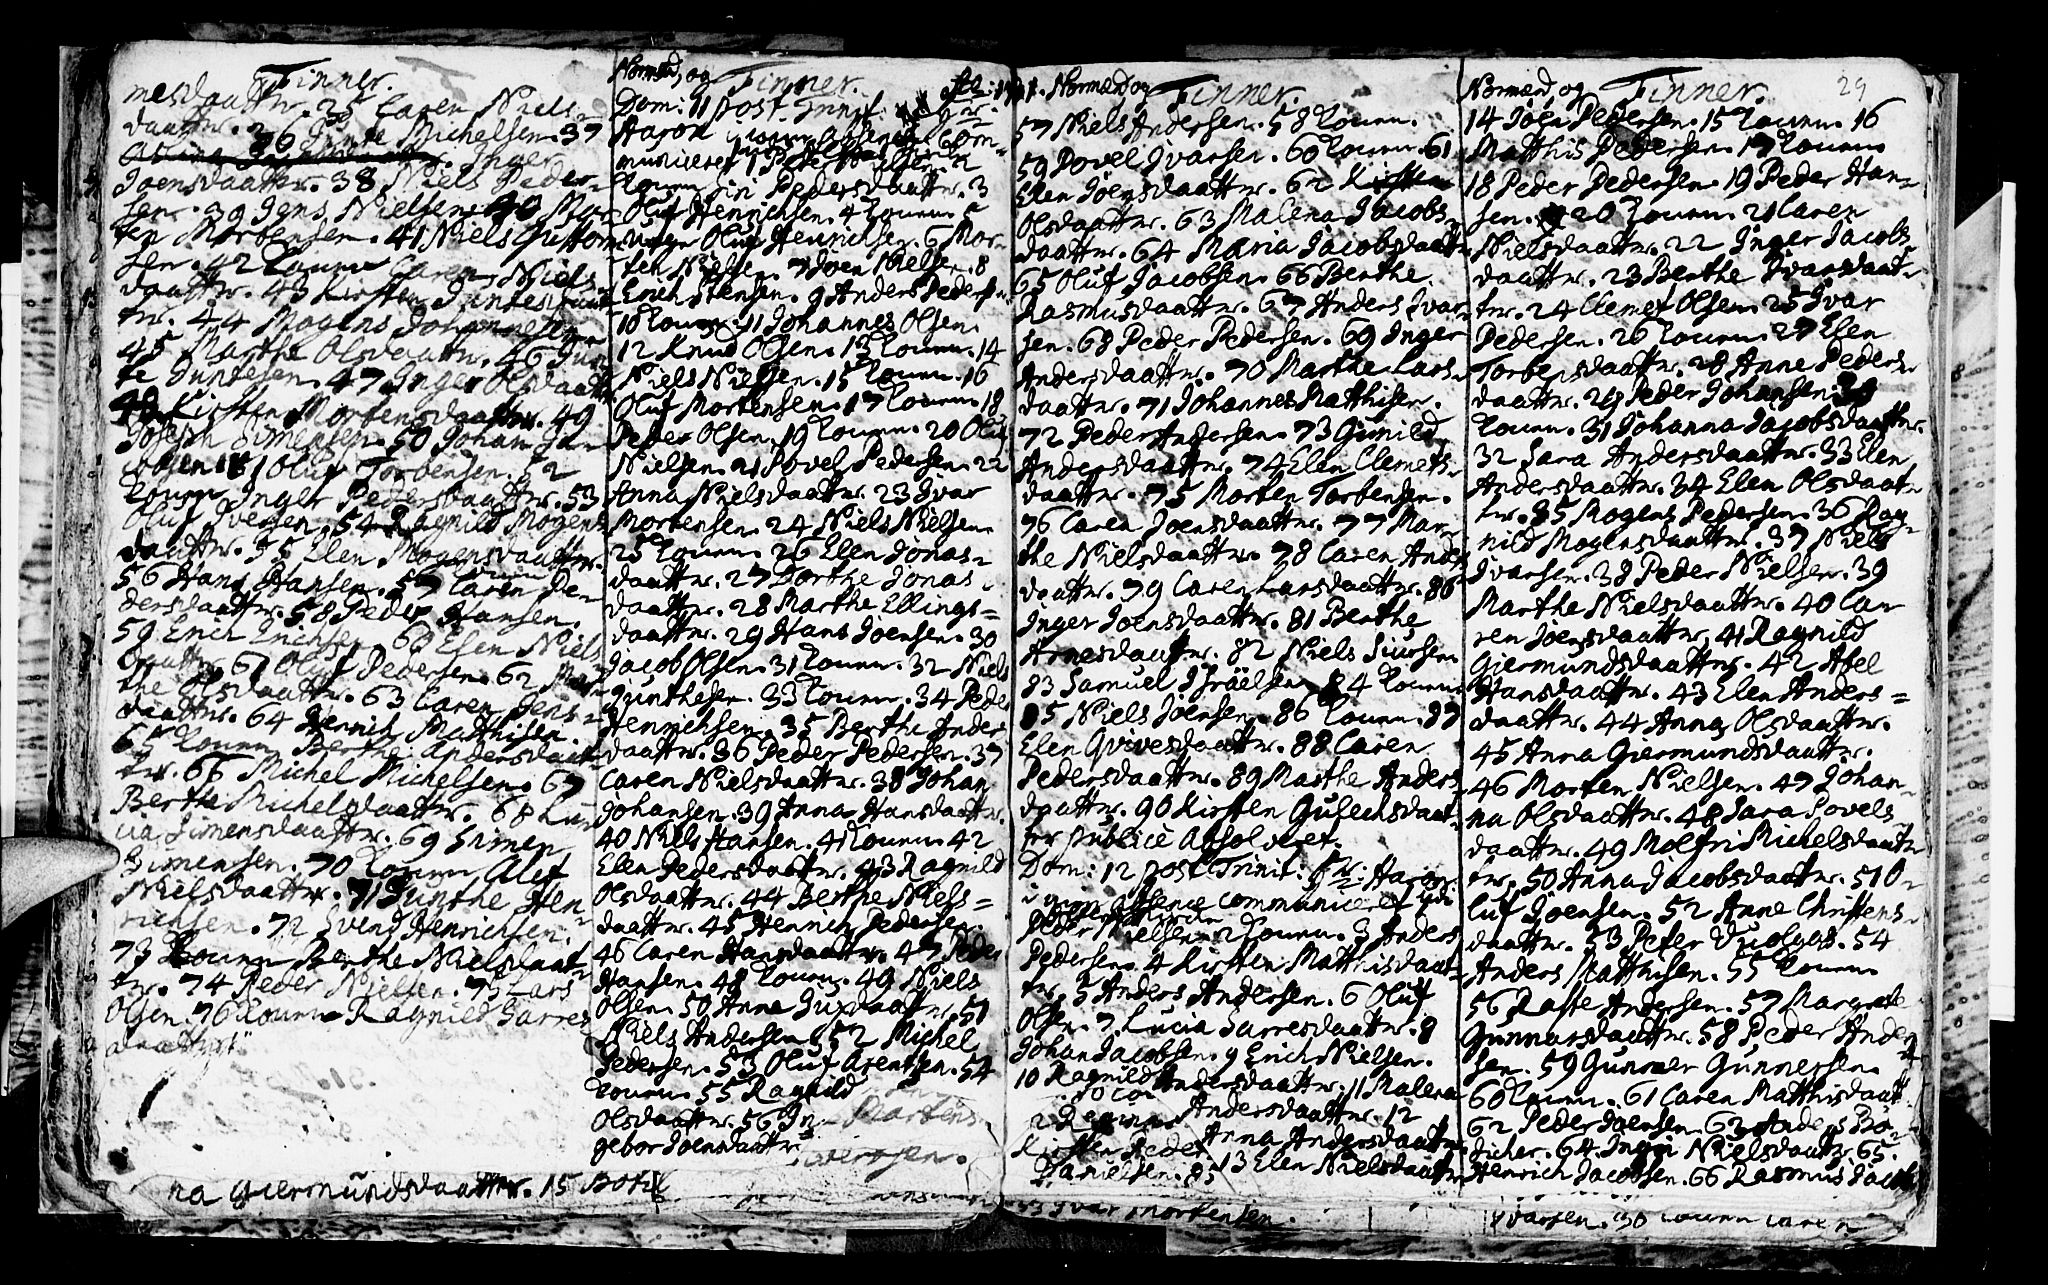 Finner.
mesdaatter. 35 Caren Niels-
daatter. 36 Junte Michelsen. 37
Inger
Joensdaatter. 38 Niels Peder-
sen. 39 Jens Nielsen. 40 Mor-
ten Mortensen. 41 Niels Guttom
sen. 42 Konen Caren Niels
daatter. 43 Kirsten Juntesdaat
ter. 44 Mogens Johannesen
45 Marthe Olsdaatter. 46 Jun
te Juntesen. 47 Inger Olsdaatter
48 Kirsten Mortensdaatter. 49
Joseph Simensen. 50 Johan Ja-
cobsen. 51 Oluf Torbensen. 52
Konen Inger Pedersdaatter. 53
Oluf Iversen. 54 Ragnild Mogens
daatter. 55 Elen Mogensdaatter.
56 Hans Hansen. 57 Konen Caren Pe-
dersdaatter. 58 Peder Hansen.
59 Erich Erichsen. 60 Elen Niels
daatter. 61 Oluf Pedersen. 62 Mar-
the Olsdaatter. 63 Caren Jens-
daatter. 64 Henrich Matthisen.
65 Konen Berthe Andersdaat
ter. 66 Michel Michelsen. 67
Berthe Michelsdaatter. 68 Lu-
cia Simensdaatter. 69 Simen
Simensen. 70 Konen Alet
Nielsdaatter. 71 Junthe Hen-
richsen. 72 Svend Henrichsen.
73 Konen Berthe Nielsdaat
ter. 74 Peder Nielsen. 75 Lars
Olsen. 76 Konen Ragnild Sarres
daatter
na Giermundsdaatter. 15 Botil
Normænd og Finner.
Dom: 11 post Trinit.
Aaron
municeret 1
Konen Siri Pedersdaatter. 3
Oluf Henrichsen. 4 Konen. 5
Unge Oluf Henrichsen. 6 Mor-
ten Nielsen. 7 Joen Nielsen. 8
Erich Stensen. 9 Anders Peders-
10 Konen. 11 Johannes Olsen.
12 Knud Olsen. 13 Konen. 14
Niels Nielsen. 15 Konen. 16
Oluf Mortensen. 17 Konen. 18
Peder Olsen. 19 Konen. 20 Oluf
Nielsen. 21 Povel Pedersen. 22
Anna Nielsdaatter. 23 Ivar
Mortensen. 24 Niels Nielsen
25 Konen. 26 Elen Jonas-
daatter. 27 Dorthe Jonas
daatter. 28 Marthe Ellings-
daatter. 29 Hans Joensen. 30
Jacob Olsen. 31 Konen. 32 Niels
Gunthesen. 33 Konen. 34 Peder
Henrichsen. 35 Berthe Anders
daatter. 36 Peder Pedersen. 37
Caren Nielsdaatter. 38 Johan
Johansen. 39 Anna Hansdaatter.
40 Niels Hansen. 41 Konen. 42
Elen Pedersdaatter. 43 Ragnild
Olsdaatter. 44 Berthe Niels-
daatter. 45 Henrich Pedersen.
46 Caren Hansdaatter. 47 Peder
Hansen. 48 Konen. 49 Niels
Olsen. 50 Anne Juxdaatter. 51
Niels Andersen. 52 Michel
Pedersen. 53 Oluf Arentsen. 54
Konen. 55 Ragnild
Olsdaatter. 56 In-
gebor Joensdaatter
Normænd og Finner.
57 Niels Andersen. 58 Konen.
59 Povel Ivarsen. 60 Konen. 61
Elen Joensdaatter. 62 Kirsten
Olsdaatter. 63 Malena Jacobs-
daatter. 64 Maria Jacobsdaatter
65 Oluf Jacobsen. 66 Berthe
Rasmusdaatter. 67 Anders Ivar-
sen. 68 Peder Pedersen. 69 Inger
Andersdaatter. 70 Marthe Lars-
daatter. 71 Johannes Matthisen.
72 Peder Andersen. 73 Gunild
Andersdaatter. 74 Elen Clemets-
daatter. 75 Morten Torbensen.
76 Caren Joensdaatter. 77 Mar-
the Nielsdaatter. 78 Caren Anders
daatter. 79 Caren Larsdaatter. 80
Inger Joensdaatter. 81 Berthe
Arnesdaatter. 82 Niels Siursen
83 Samuel Israelsen. 84 Konen
85 Niels Joensen. 86 Konen. 87
Elen Qvivesdaatter. 88 Caren
Pedersdaatter. 89 Marthe Anders
daatter. 90 Kirsten Gulechsdaat-
ter publice Absolveret.
Dom: 12 post Trinit: Hr: Aaron
absence communiceret
Peder Nielsen. 2 Konen. 3 Anders
Pedersen. 4 Kirsten Matthisdaat-
ter. 5 Anders Andersen. 6 Oluf
Olsen. 7 Lucia Sarresdaatter. 8
Johan Jacobsen. 9 Erich Nielsen.
10 Ragnild Andersdaatter. 11 Malena
Andersdaatter. 12
Kirsten Peder Anna Andersdaatter
Danielsen. 85 13 Elen Nielsdaatter
53 Ivar Mortensen.
Normænd og Finner. 29
14 Joen Pedersen. 15 Konen. 16
Matthis Pedersen. 17 Konen
18 Peder Pedersen. 19 Peder Han-
sen. 20 Konen. 21 Caren
Nielsdaatter. 22 Inger Jacobs-
daatter. 23 Berthe Ivarsdaat-
ter. 24 Clemet Olsen. 25 Ivar
Pedersen. 26 Konen. 27 Elen
Torbensdaatter. 28 Anne Peders-
daatter. 29 Peder Johansen. 30
Konen. 31 Johanna Jacobsdaatter.
32 Sara Andersdaatter. 33 Elen
Andersdaatter. 34 Elen Olsdaat-
ter. 35 Mogens Pedersen. 36 Rag-
nild Mogensdaatter. 37 Niels
Ivarsen. 38 Peder Nielsen. 39
Marthe Nielsdaatter. 40 Ca-
ren Joensdaatter. 41 Ragnild
Giermundsdaatter. 42 Abel
Hansdaatter. 43 Elen Anders-
daatter. 44 Anna Olsdaatter.
45 Anna Giermundsdaatter.
46 Morten Nielsen. 47 Johan-
na Olsdaatter. 48 Sara Povels
daatter. 49 Molfri Michelsdaat-
ter. 50 Anna Jacobsdaatter. 51 O-
luf Joensen. 52 Anne Christens-
daatter. 53 Peter 54
Anders Matthisen. 55 Konen
56 Raste Andersen. 57 Margrete
Gunnarsdaatter. 58 Peder Ander-
sen. 59 Gunner Gunnersen
60 Konen. 61 Caren Matthisdaat
62 Peder Joensen. 63 Anders Bø-
dicher. 64 Inger Nielsdaatter. 65.
Henrich Jacobsen. 66 Rasmus Jacobs
Ivarsen. 30 Konen Caren